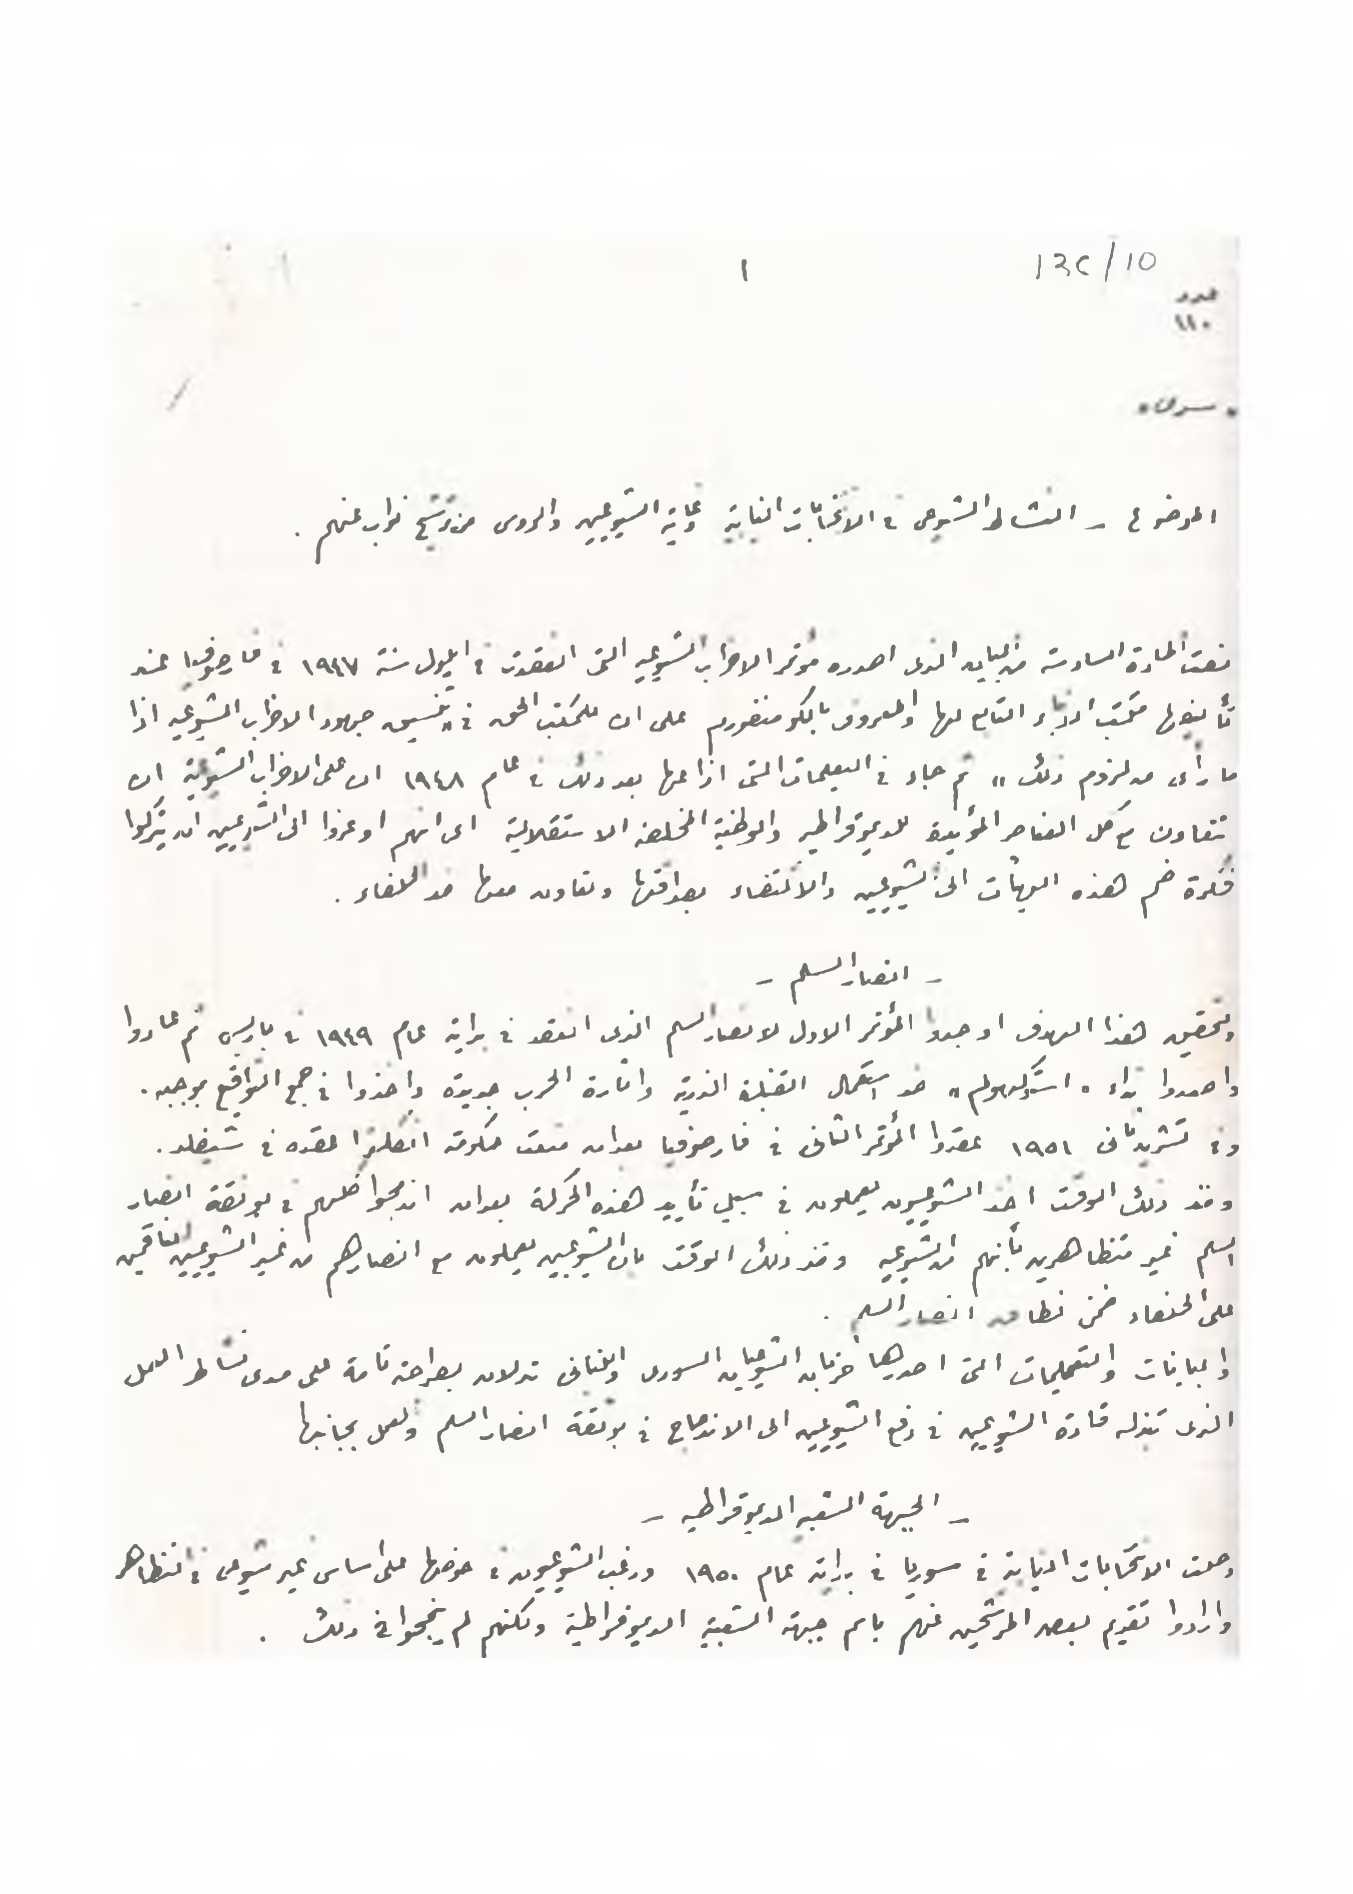 13C/10
١
عدد
١١٠
• سري •
الموضوع – النشاط الشيوعي في الانتخابات النيابية وغاية الشيوعيين والروس من ترشيح نواب عنهم .
نصت المادة السادسة من البيان الذي اصدره مؤتمر الاحزاب الشيوعيه التي انعقدت في ايلول سنة ١٩٤٧ في فارصوفيا عند
تأليفها مكتب الانباء التابع لها والمعروف بالكومنفورم على ان للمكتب الحق في " تنسيق جهود الاحزاب الشيوعيه اذا
ما رأى من لزوم ذلك " ثم جاء في التعليمات التي اذاعها بعد ذلك في عام ١٩٤٨ ان على الاحزاب الشيوعية ان
تتعاون مع كل العناصر المؤيدة للديموقراطيه والوطنية المخلصه الاستقلالية اي انهم اوعزوا الى الشيوعيين ان يتركوا
فكرة ضم هذه الهيئات الى الشيوعيين والاكتفاء بصداقتها وتعاون معها ضد الحلفاء .
– انصار السلم –
ولتحقيق هذا الهدف اوجدوا المؤتمر الاول لانصار السلم الذي انعقد في بداية عام ١٩٤٩ في باريس ثم عادوا
واصدروا نداء " استوكهولم " ضد استعمال القنبلة الذرية واثارة الحرب جديدة واخذوا في جمع التواقيع بموجبه .
وفي تشرين ثاني ١٩٥١ عقدوا المؤتمر الثاني في فارصوفيا بعد ان منعت حكومة انكلترا عقده في شيفلد .
ومنذ ذلك الوقت اخذ الشيوعيون يعملون في سبيل تأييد هذه الحركة بعد ان اندمجوا كلهم في بوتقة انصار
السلم غير متظاهرين بأنهم من الشيوعيه ومنذ ذلك الوقت بات الشيوعيين يعملون مع انصارهم من غير الشيوعيين الناقمين
على الحلفاء ضمن نطاق انصار السلم .
والبيانات والتعليمات التي اصدرها حزبان الشيوعيان السوري واللبناني تدلان بصراحة تامة على مدى نشاط العمل
الذي تبذله قادة الشيوعيين في دفع الشيوعيين الى الاندماج في بوتقة انصار السلم والعمل بجانبها
– الجبهة الشعبيه الديموقراطيه –
وصلت الانتخابات النيابية في سوريا في بداية عام ١٩٥٠ ورغب الشيوعيون في خوضها على اساس غير شيوعي في التظاهر
وارادوا تقديم بعض المرشحين عنهم باسم جبهة الشعبية الديموقراطية ولكنهم لم ينجحوا في ذلك .